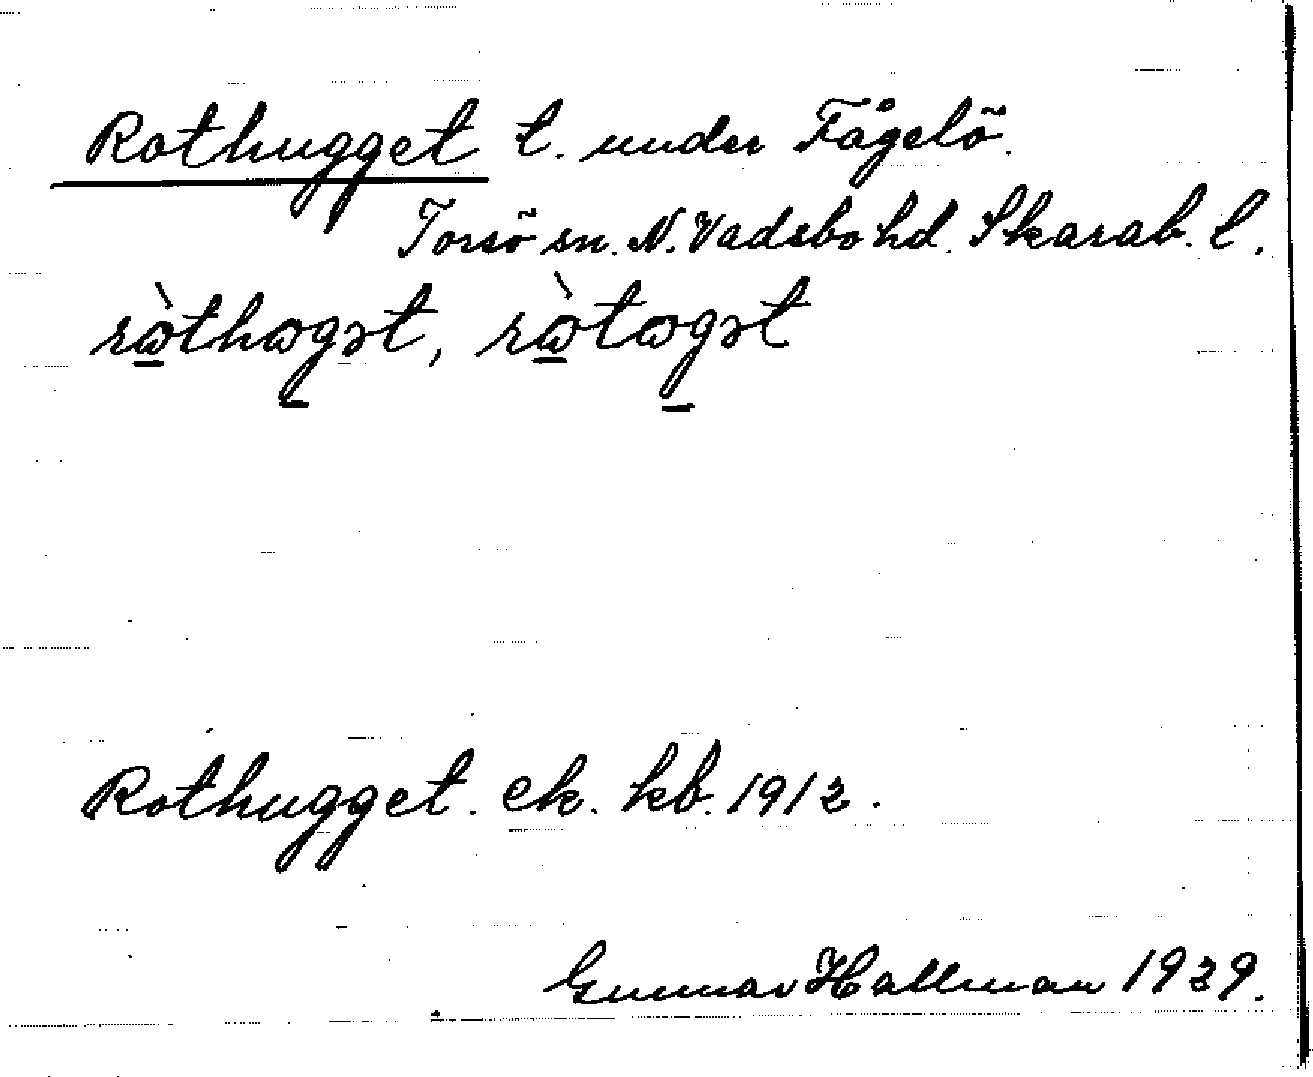 Rothugget t. under Fågelö.
Torsö sn. N. Vadsbo hd. Skarab. l.
rὼthωgət, rὼtωgət
Rothugget. ek. kb. 1912.
Gunnar Hallman 1929.